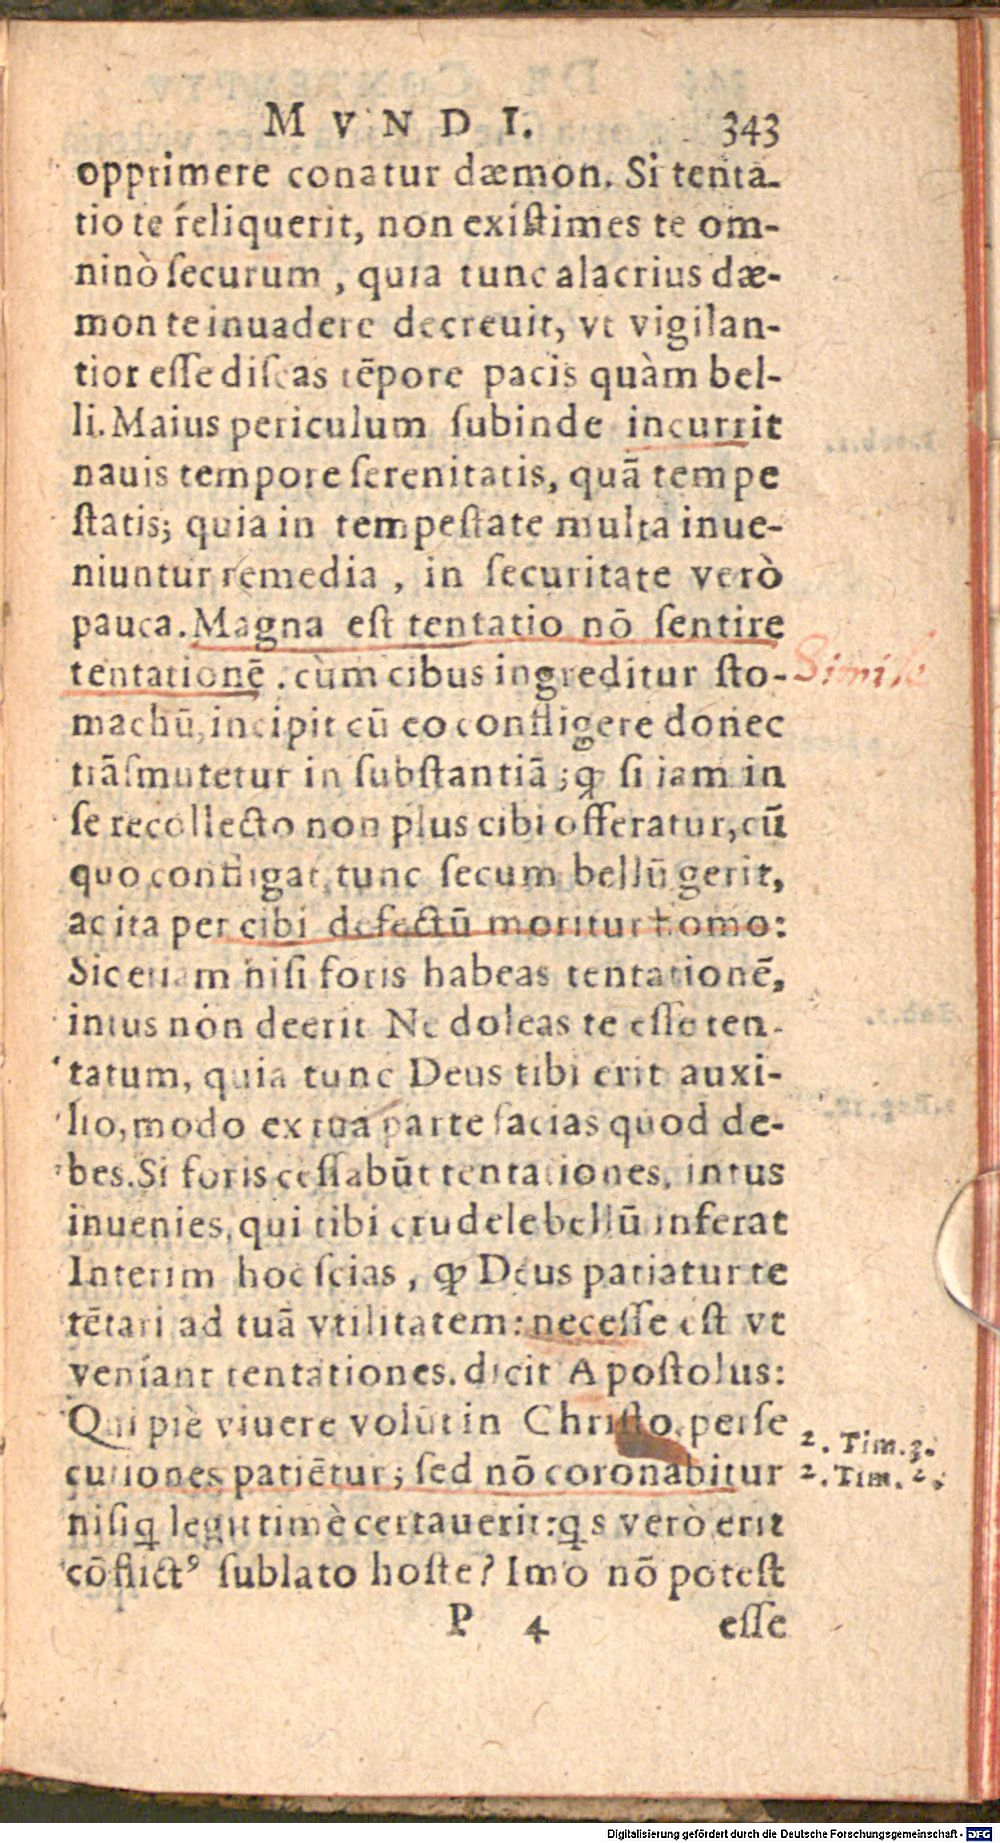 MVNDI. 343
opprimere conatur dæmon. Si tenta-
tio te reliquerit, non existimes te om-
ninò securum, quia tunc alacrius dæ-
mon te inuadere decreuit, vt vigilan-
tior esse discas tẽpore pacis quàm bel-
li. Maius periculum subinde incurrit
nauis tempore serenitatis, quã tempe
statis; quia in tempestate multa inue-
niuntur remedia, in securitate verò
pauca. Magna est tentatio nõ sentire
tentationẽ. cùm cibus ingreditur sto-
Simile
machũ, incipit cũ eo confligere donec
trãsmutetur in substantiã; ꝙ si iam in
se recollecto non plus cibi offeratur, cũ
quo confligat, tunc secum bellũ gerit,
ac ita per cibi defectũ moritur homo:
Sic etiam nisi foris habeas tentationẽ,
intus non deerit Ne doleas te esse ten-
tatum, quia tunc Deus tibi erit auxi-
lio, modo ex tua parte facias quod de-
bes. Si foris cessabũt tentationes, intus
inuenies, qui tibi crudele bellũ inferat
Interim hoc scias, ꝙ Deus patiatur te
tẽtari ad tuã vtilitatem: necesse est vt
veniant tentationes. dicit Apostolus:
Qui piè viuere volũt in Christo, perse
2. Tim. 3.
cutiones patiẽtur; sed nõ coronabitur
2. Tim. 2.
nisi q legittimè certauerit: q s verò erit
cõflictꝰ sublato hoste? Imo nõ potest
P 4 esse
Digitalisierung gefördert durch die Deutsche Forschungsgemeinschaft - DFG